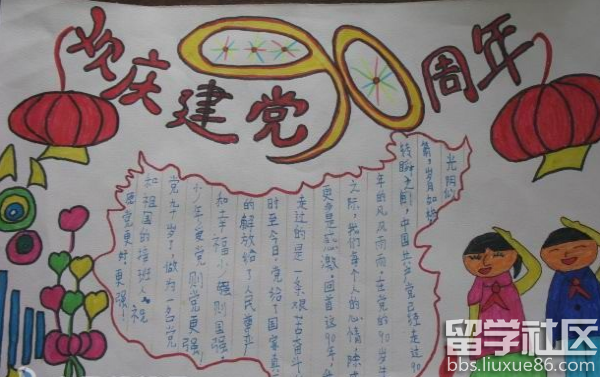 欢庆建党90周年
光阴似
箭，岁月如梭
转瞬之间，中国共产党已经走过90
年的风风雨雨。在党的90岁生
之际，我们每个人的心情，除
更多是感激。回首这90年，
走过的是一条艰苦奋斗
时至今日，党给了国家真
的解放给了人民
和幸福少年强则国强
少年爱党则党更强！
党九十岁了，做为一名党
和祖国的接班人，祝
愿党更好更强！
留学社区
bbs.liuxue86.com